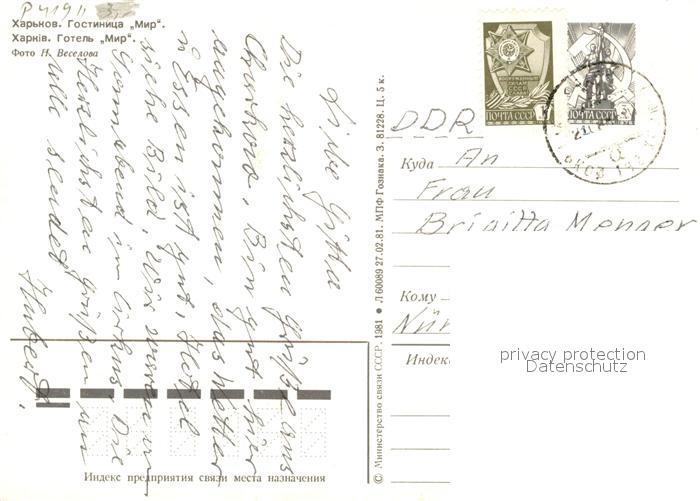 Р 4191
Харьков. Гостиница „Мир".
Харків. Готель „Мир".
Фото Н. Веселова
Liebe Gitta
Die herzlichsten Grüße aus
Charkow. Bin gut hier
angekommen, das Wetter
u. Essen ist gut, Hotel
siehe Bild. Wir waren
Gornabend in Cirkus. Die
Herzlichsten Grüßen an
alle sendet
Hubert.
Индекс предприятия связи места назначения
© Министерство связи СССР. 1981 ● Л 60089 27.02.81. МПФ Гознака. З. 81228. Ц. 5 к.
ВООРУЖЕННЫЕ СИЛЫ СССР
ПОЧТА СССР
ПОЧТА СССР
DDR
Куда An
Frau
Brigitta Menzer
Кому
Nür
Индекс
privacy protection
Datenschutz